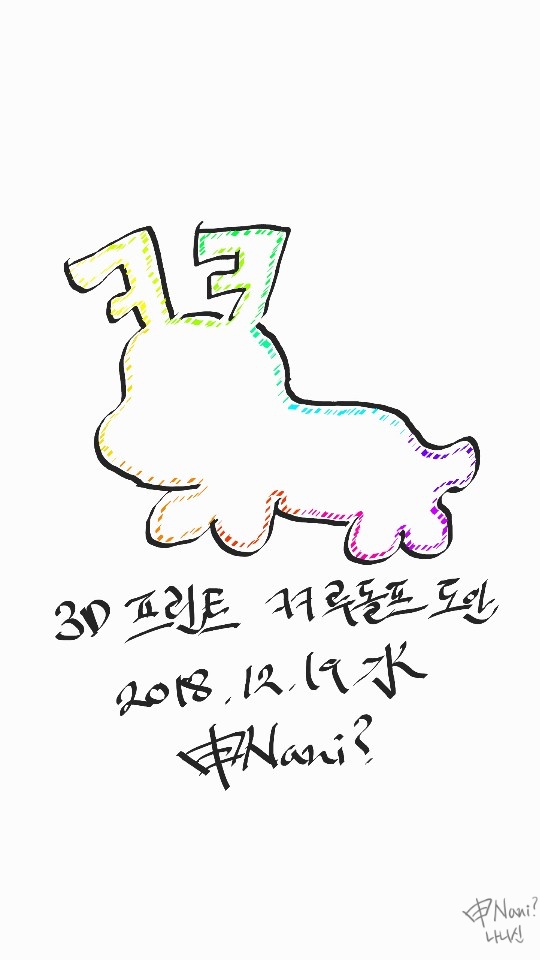 ㅋㅋ
3D 프린트 ㅋㅋ루돌프 도안
2018.12.19 水
申Nani?
申Nani?
나나신